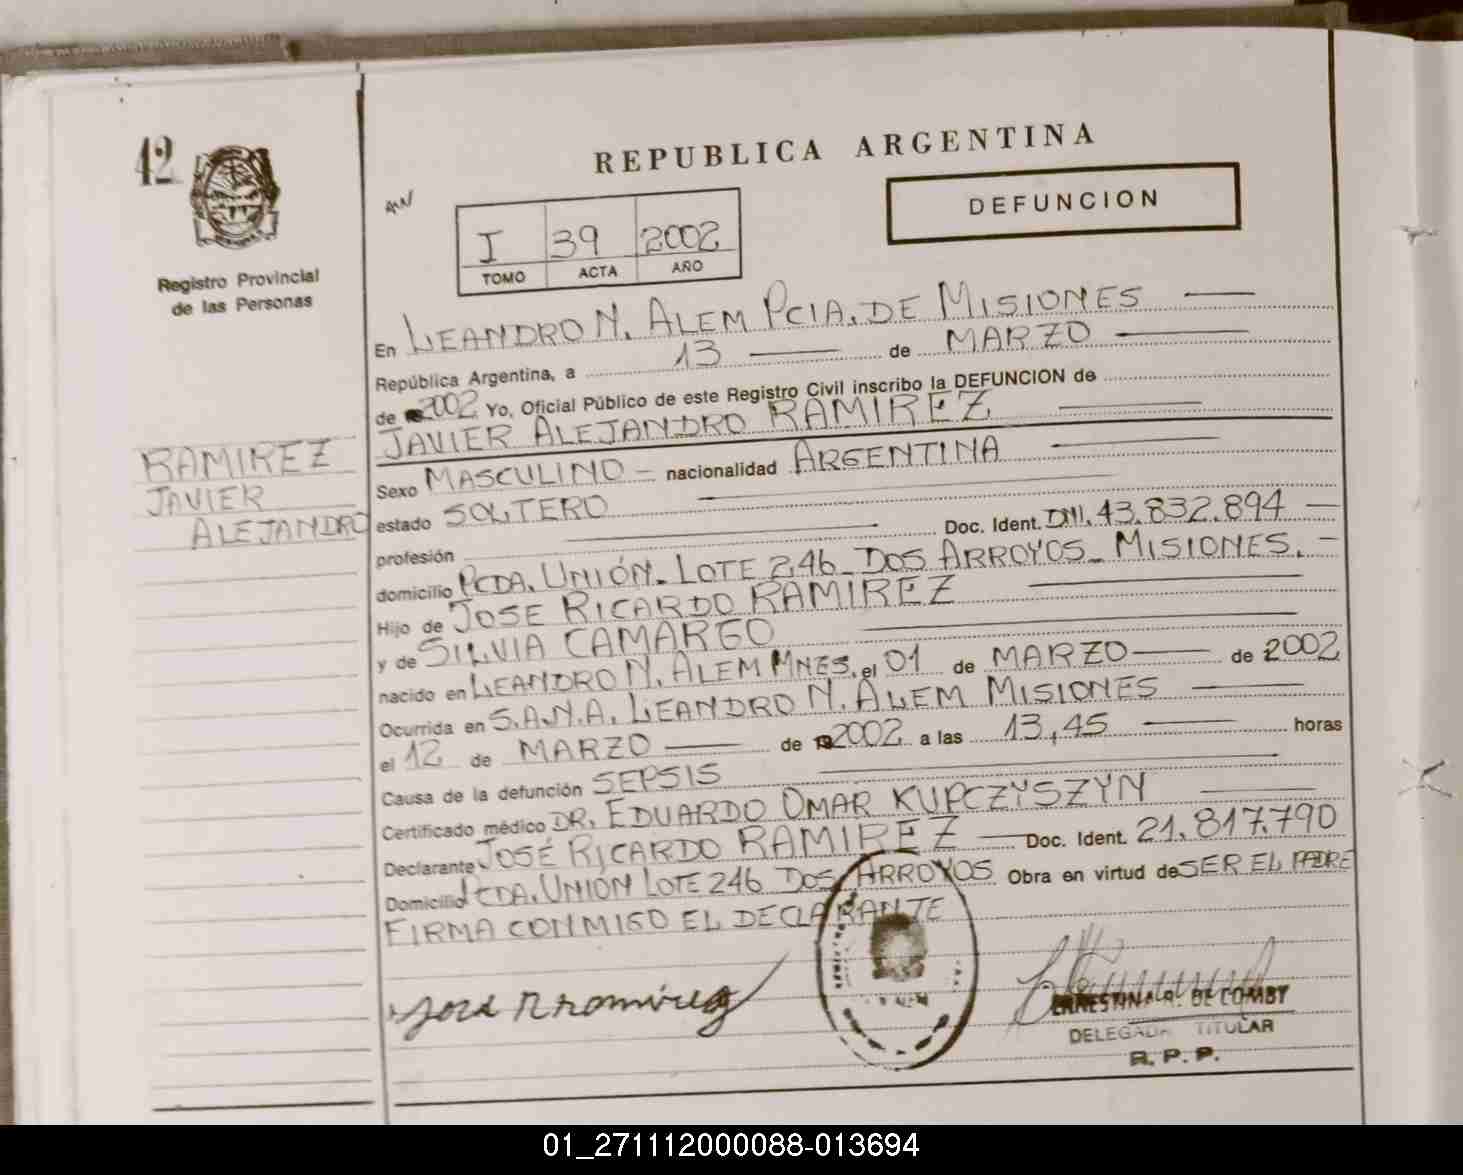 42
REPUBLICA ARGENTINA
DEFUNCION
I 39 2002
TOMO ACTA AÑO
Registro Provincial
de las Personas
RAMIREZ
JAVIER
ALEJANDRO
En LEANDRO N. ALEM PCIA. DE MISIONES
República Argentina, a 13 de MARZO
de 2002 Yo, Oficial Público de este Registro Civil inscribo la DEFUNCION de
JAVIER ALEJANDRO RAMIREZ
Sexo MASCULINO - nacionalidad ARGENTINA
estado SOLTERO
profesión Doc. Ident. DNI. 43.832.894
domicilio PCDA. UNIÓN. LOTE 246 DOS ARROYOS - MISIONES. -
Hijo de JOSE RICARDO RAMIREZ
y de SILVIA CAMARGO
nacido en LEANDRO N. ALEM MNES. el 01 de MARZO de 2002
Ocurrida en S.A.N.A. LEANDRO N. ALEM MISIONES
el 12 de MARZO de 2002 a las 13,45 horas
Causa de la defunción SEPSIS
Certificado médico DR. EDUARDO OMAR KUPCZYSZYN
Declarante JOSÉ RICARDO RAMIREZ Doc. Ident. 21.817.790
Domicilio PCDA. UNIÓN LOTE 246 DOS ARROYOS Obra en virtud de SER EL PADRE
FIRMA CONMIGO EL DECLARANTE
Jose R ramirez
ERNESTINA R. DE COMBY
DELEGADA TITULAR
R. P. P.
01_271112000088-013694